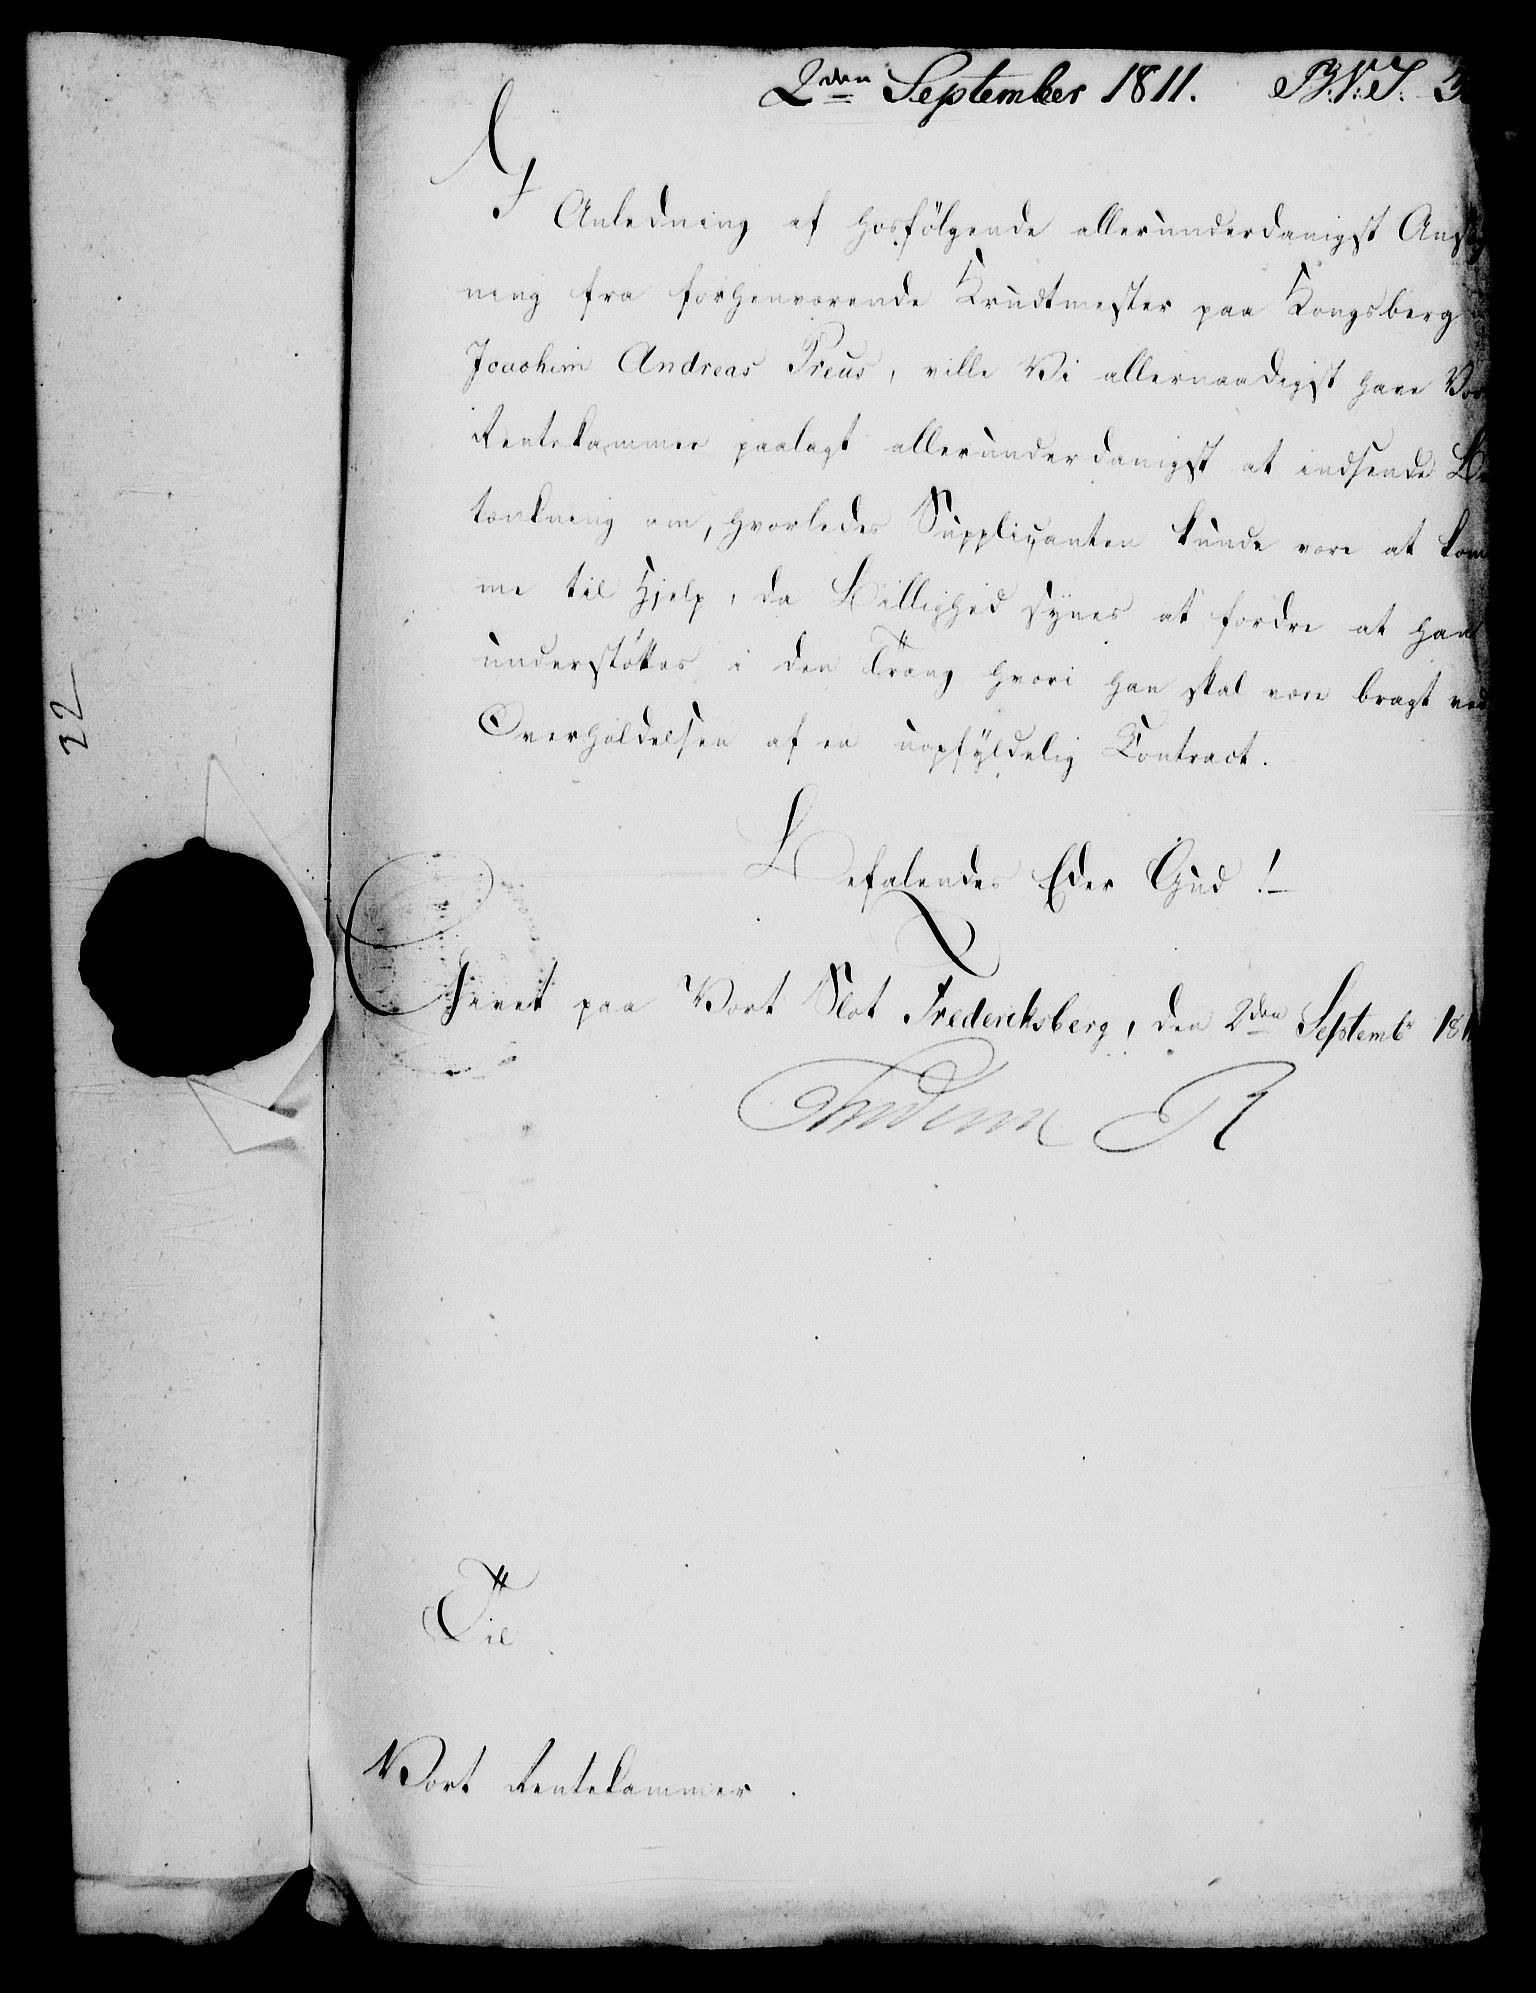 2den September 1811.
I Anledning af hosfölgende allerunderdanigst Ansög
ning fra forhenværende Krudtmester paa Kongsberg
Joachim Andreas Preus, ville Vi allernaadigst have Vort
Rentekammer paalagt allerunderdanigst at indsende Be
tænkning om, hvorledes Supplicanten kunde være at kom
me til Hjelp, da Billighed synes at fordre at han
understöttes i den Trang hvori han skal være bragt ved
Overholdelsen af en uopfyldelig Contract.
Befalendes Eder Gud!
Givet paa Vort Slot Frederiksberg, den 2den Septembr 1811
Frederik R
Til
Vort Rentekammer.
22